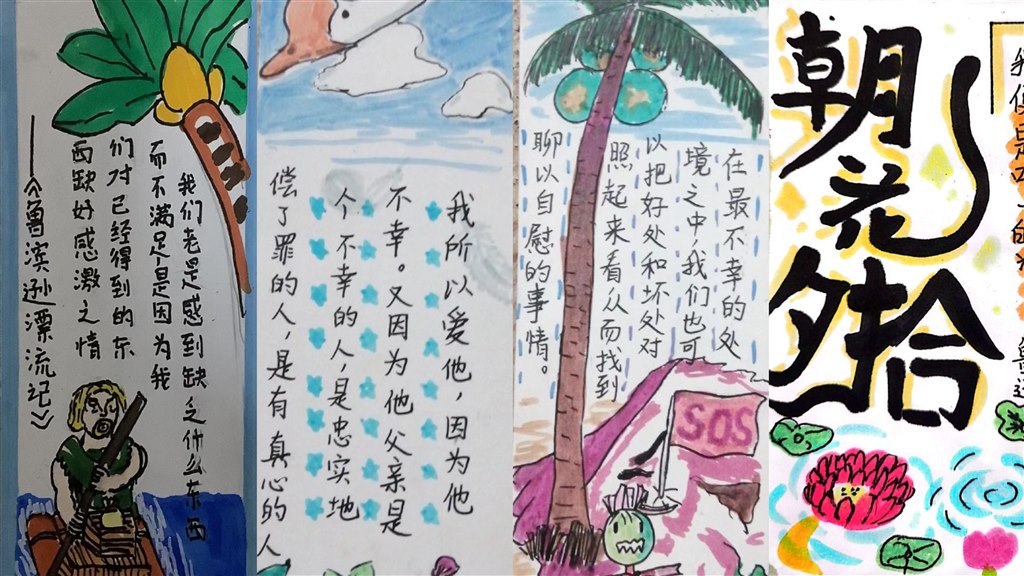 我们老是感到缺乏什么东西
而不满足是因为我
们对已经得到的东
西缺好感激之情
——《鲁滨逊漂流记》
我所以爱他，因为他
不幸。又因为他父亲是
个不幸的人，是忠实地
偿了罪的人，是有真心的人
在最不幸的处
境之中，我们也可
以把好处和坏处对
照起来看从而找到
聊以自慰的事情。
SOS
朝花夕拾